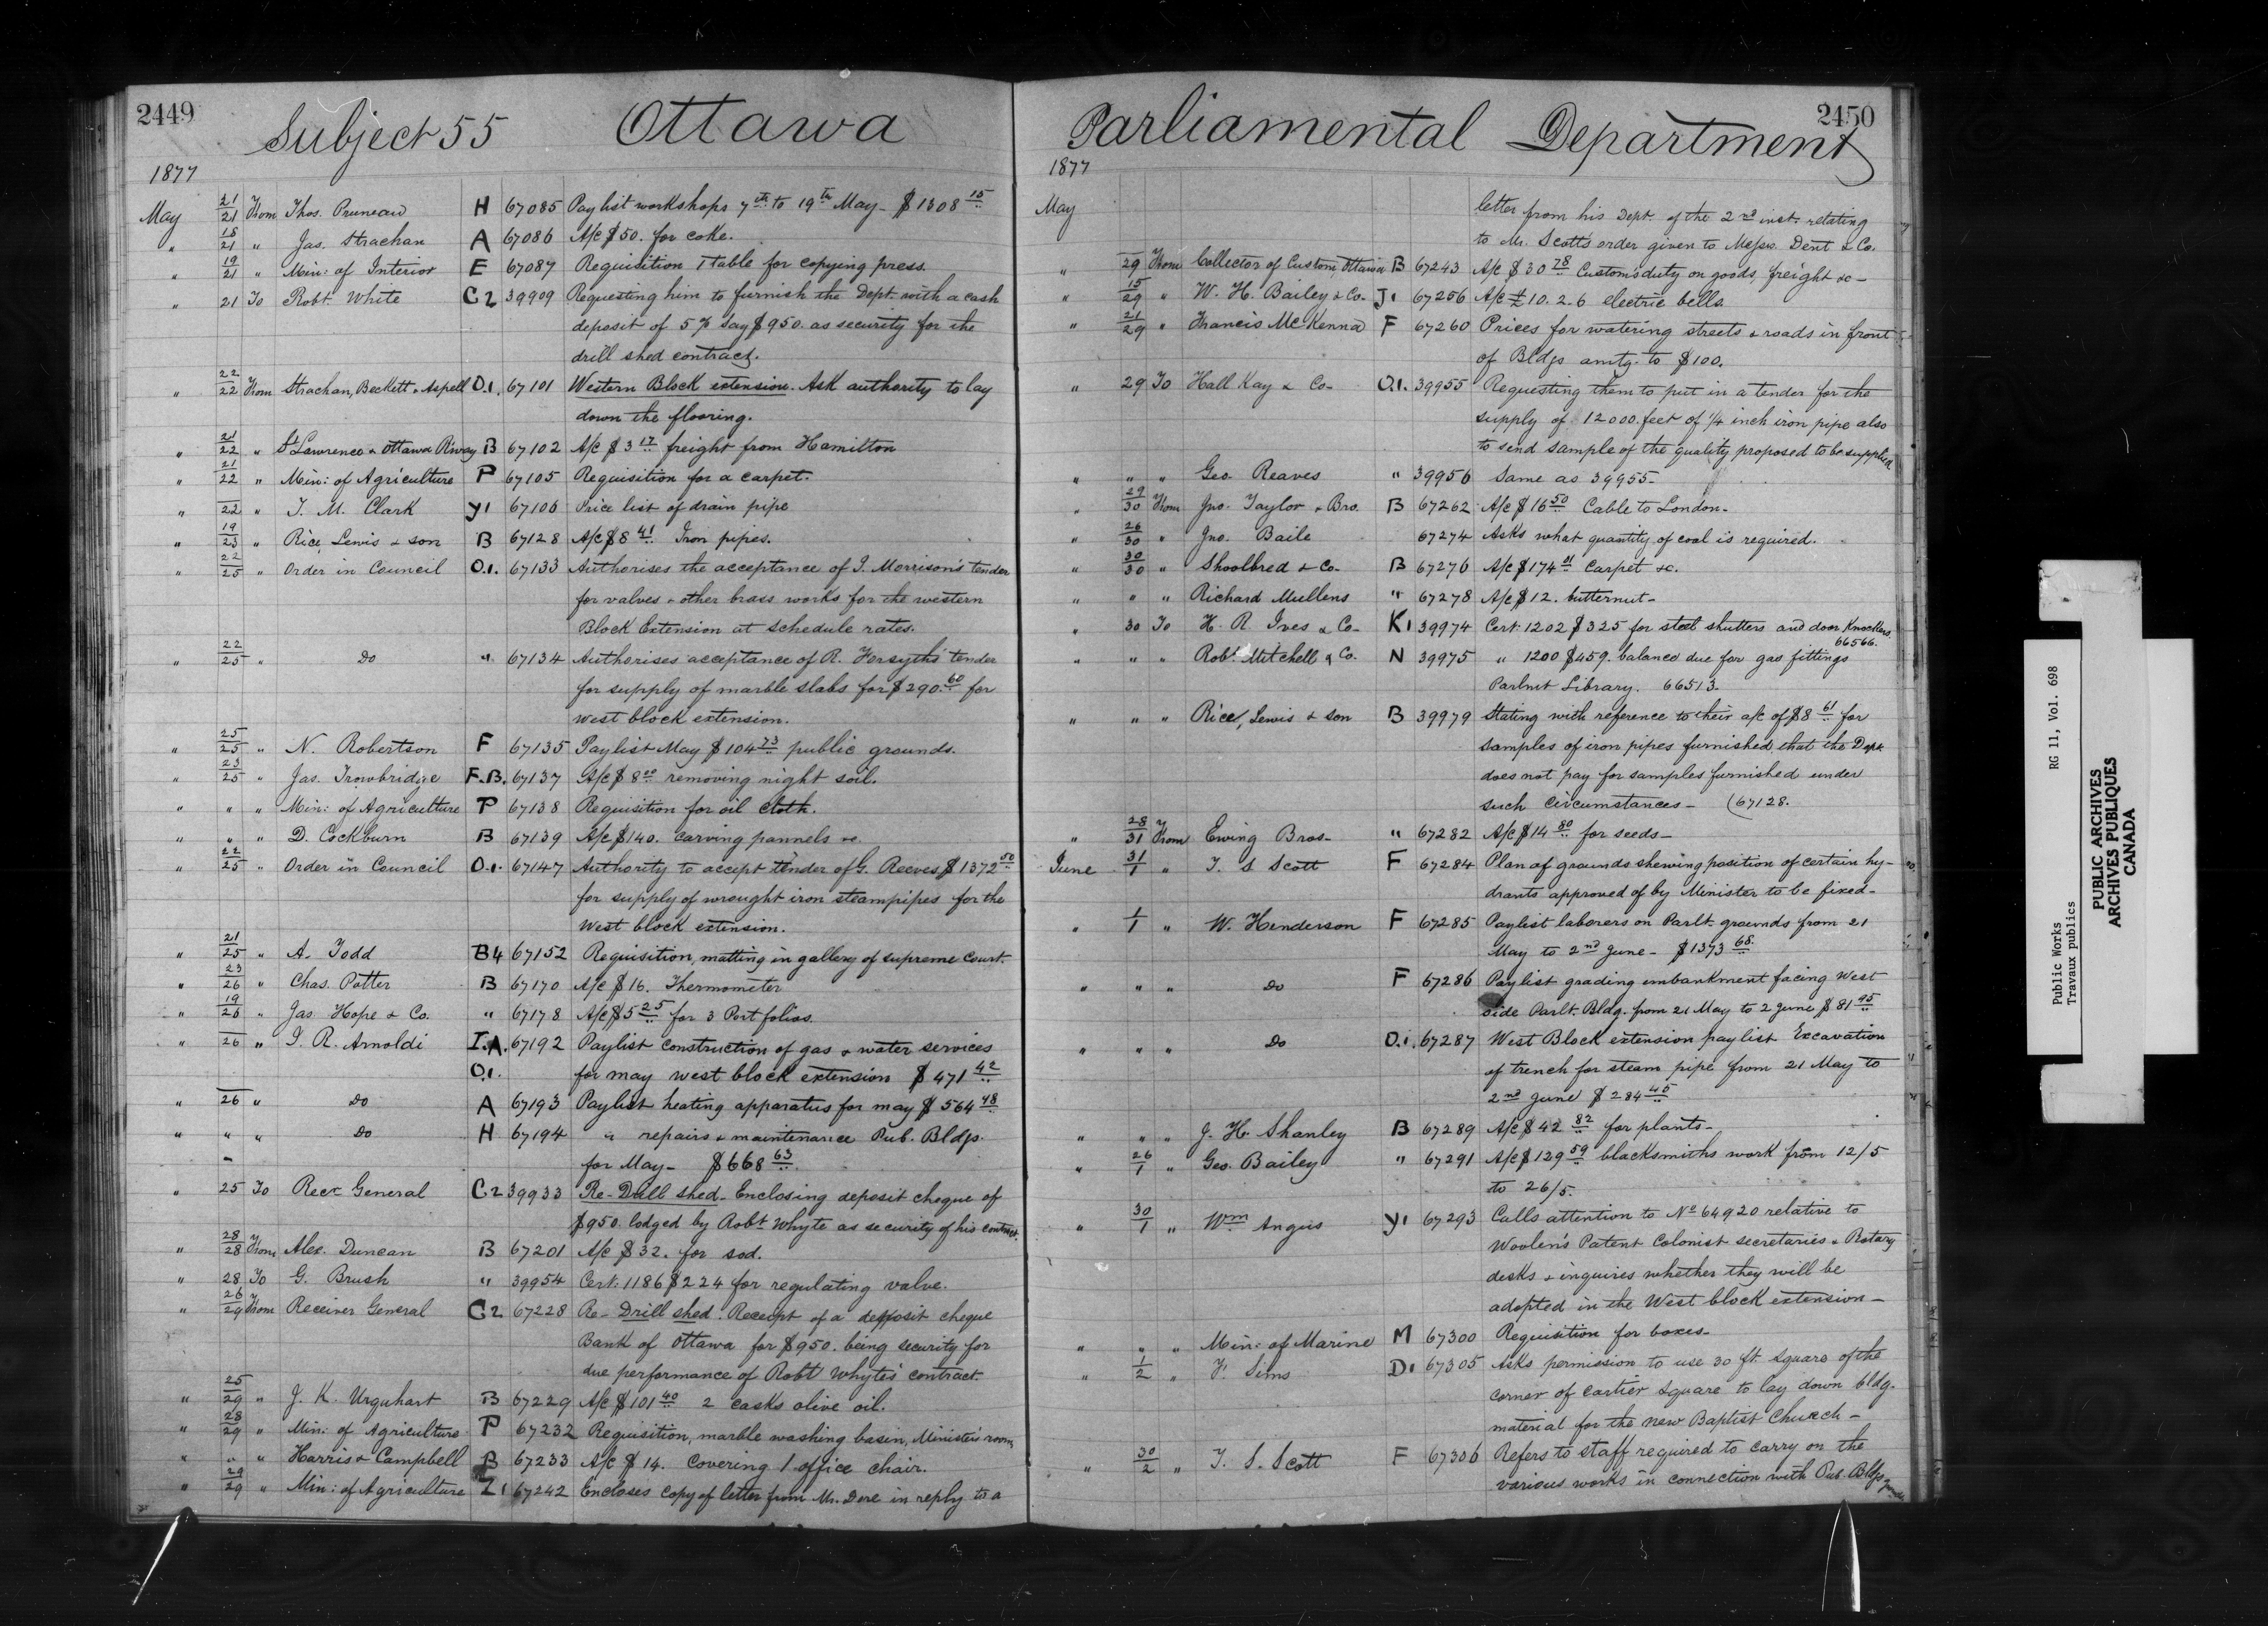 2449
Subject 55 Ottawa
1877
May 21/21 From Thos. Pruneau H 67085 Paylist workshops 7th to 19th May - $1308 15
" 18/21 " Jas. Strachan A 67086 A/c $50. for coke.
" 19/21 " Min: of Interior E 67087 Requisition 1 table for copying press.
" 21 To Robt. White C2 39909 Requesting him to furnish the Dept. with a cash
deposit of 5% say $950. as security for the
drill shed contract.
" 22/22 From Strachan, Beckett & Aspell O.1. 67101 Western Block extension. Ask authority to lay
down the flooring.
" 21/22 " St Lawrence & Ottawa R'way B 67102 A/c $3 17 freight from Hamilton
" 21/22 " Min: of Agriculture P 67105 Requisition for a carpet.
" 22 " T. M. Clark Y1 67106 Price list of drain pipe
" 19/23 " Rice, Lewis & son B 67128 A/c $8 41 Iron pipes.
" 22/25 " Order in Council O.1. 67133 Authorises the acceptance of I. Morrison's tender
for valves & other brass works for the western
Block Extension at schedule rates.
" 22/25 " Do " 67134 Authorises acceptance of R. Forsyth's tender
for supply of marble slabs for $290.60 for
west block extension.
" 25/25 " N. Robertson F 67135 Paylist May $104 73 public grounds.
" 23/25 " Jas. Trowbridge F.B. 67137 A/c $8 removing night soil.
" " " Min: of Agriculture P 67138 Requisition for oil cloth.
" " " D. Cockburn B 67139 A/c $140. carving pannels &c.
" 22/25 " Order in Council O.1. 67147 Authority to accept tender of G. Reeves $1372 50
for supply of wrought iron steampipes for the
West block extension.
" 21/25 " A. Todd B4 67152 Requisition, matting in gallery of supreme Court.
" 23/26 " Chas. Potter B 67170 A/c $16. Thermometer
" 19/26 " Jas Hope & Co. " 67178 A/c $5 25 for 3 Portfolios.
" 26 " J. R. Arnoldi I.A. 67192 Paylist construction of gas & water services
O.1. for may west block extension $471 42
" 26 " Do A 67193 Paylist heating apparatus for may $564 48
" " " Do H 67194 " repairs & maintenance Pub. Bldgs.
for May - $668 63
" 25 To Recr General C2 39933 Re-Drill shed - Enclosing deposit cheque of
$950. lodged by Robt Whyte as security of his contract
" 28/28 From Alex. Duncan B 67201 A/c $32. for sod.
" 28 To G. Brush " 39954 Cert. 1186 $224 for regulating valve.
" 26/29 From Receiver General C2 67228 Re-Drill shed. Receipt of a deposit cheque
Bank of Ottawa for $950. being security for
due performance of Robt Whyte's contract
" 25/29 " J. K. Urquhart B 67229 A/c $101 40 2 casks olive oil.
" 28/29 " Min: of Agriculture P 67232 Requisition, marble washing basin, Minister's room
" " " Harris & Campbell B 67233 A/c $14. Covering 1 office chair.
" 29/29 " Min: of Agriculture 67242 Encloses copy of letter from Mr. Dore in reply to a
2450
Parliamental Department
1877
May letter from his Dept. of the 2nd inst. relating
to Mr. Scott's order given to Messrs. Dent & Co.
" 29 From Collector of Custom, Ottawa B 67243 A/c $30 78 Customs duty on goods, freight &c -
" 15/29 " W. H. Bailey & Co. J1 67256 A/c £10.2.6 electric bells.
" 21/29 " Francis McKenna F 67260 Prices for watering streets & roads in front
of Bldgs amtg. to $100.
" 29 To Hall Kay & Co- O.1. 39955 Requesting them to put in a tender for the
supply of 12000 feet of 1/4 inch iron pipe also
to send sample of the quality proposed to be supplied
" " " Geo. Reaves " 39956 Same as 39955 -
" 29/30 From Jno. Taylor & Bro. B 67262 A/c $16 50 Cable to London -
" 26/30 " Jno. Baile 67274 Asks what quantity of coal is required.
" 30/30 " Shoolbred & Co- B 67276 A/c $174 01 Carpet &c.
" " " Richard Mullens " 67278 A/c $12. butternut -
" 30 To H. R. Ives & Co- K1 39974 Cert: 1202 $325 for steel shutters and door knockers
66566.
" " " Robt. Mitchell & Co. N 39975 " 1200 $459. balance due for gas fittings
Parlmt Library. 66513 -
" " " Rice, Lewis & son B 39979 Stating with reference to their a/c of $8 61 for
samples of iron pipes furnished that the Dept
does not pay for samples furnished under
such circumstances - (67128.
" 28/31 From Ewing Bros - " 67282 A/c $14 80 for seeds -
June 31/1 " T. S Scott F 67284 Plan of grounds shewing position of certain hy-
drants approved of by Minister to be fixed -
" 1/1 " W. Henderson F 67285 Paylist laborers on Parlt. grounds from 21
May to 2nd June - $1373 68.
" " " Do F 67286 Paylist grading embankment facing West
side Parlt. Bldg. from 21 May to 2 June $81 95
" " " Do O.1. 67287 West Block extension paylist Excavation
of trench for steam pipe from 21 May to
2nd June $284 45
" " " J. H. Shanley B 67289 A/c $42 82 for plants -
" 26/1 " Geo. Bailey " 67291 A/c $139 59 blacksmiths work from 12/5
to 26/5.
" 30/1 " Wm Angus Y1 67293 Calls attention to No 64920 relative to
Woolen's Patent Colonist secretaries & Rotary
desks & inquires whether they will be
adopted in the West block extension -
" " " Min: of Marine M 67300 Requisition for boxes -
" 1/2 " F. Sims D1 67305 Asks permission to use 30 ft square of the
corner of Cartier Square to lay down bldg.
material for the new Baptist Church -
" 30/2 " T. S. Scott F 67306 Refers to staff required to carry on the
various works in connection with Pub. Bldgs
Public Works RG 11, Vol. 698
Travaux publics
PUBLIC ARCHIVES
ARCHIVES PUBLIQUES
CANADA